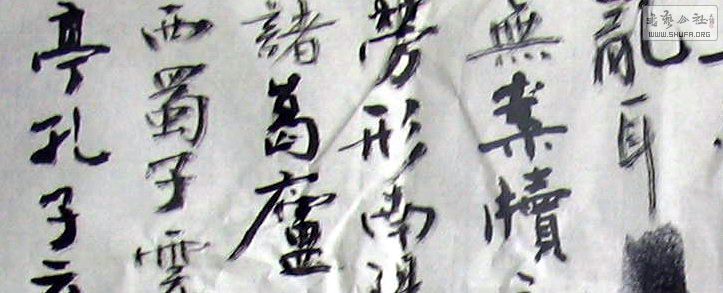 亂耳
無案牘
勞形南陽
諸葛廬
西蜀子雲
亭孔子云
書藝公社
WWW.SHUFA.ORG